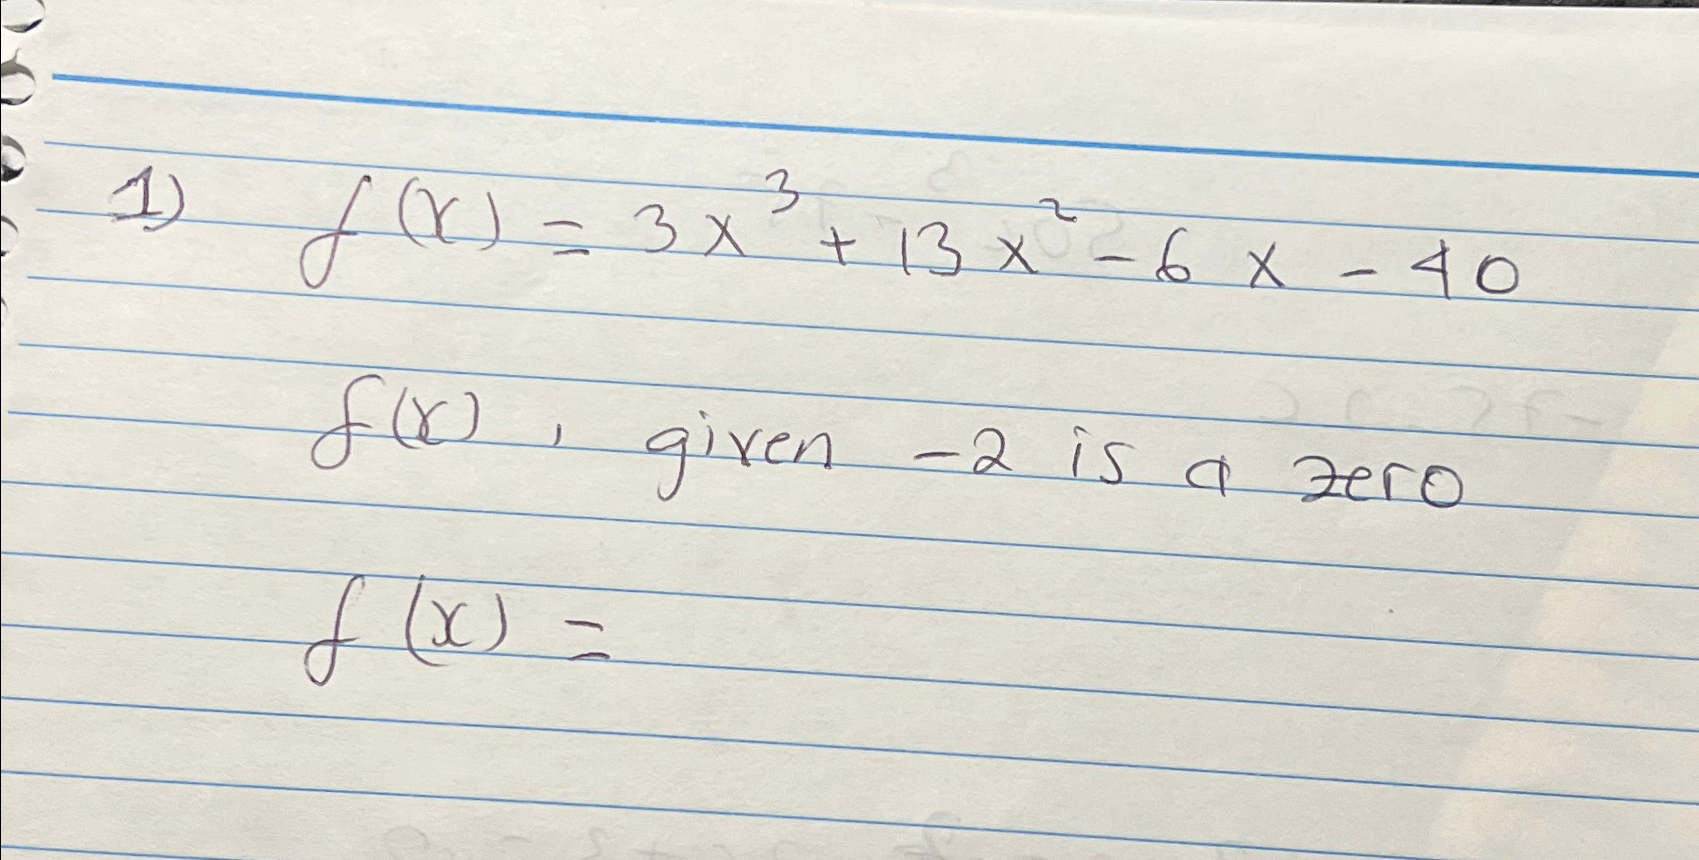 1) f(x) = 3x³ + 13x² - 6x - 40
f(x), given -2 is a zero
f(x) =